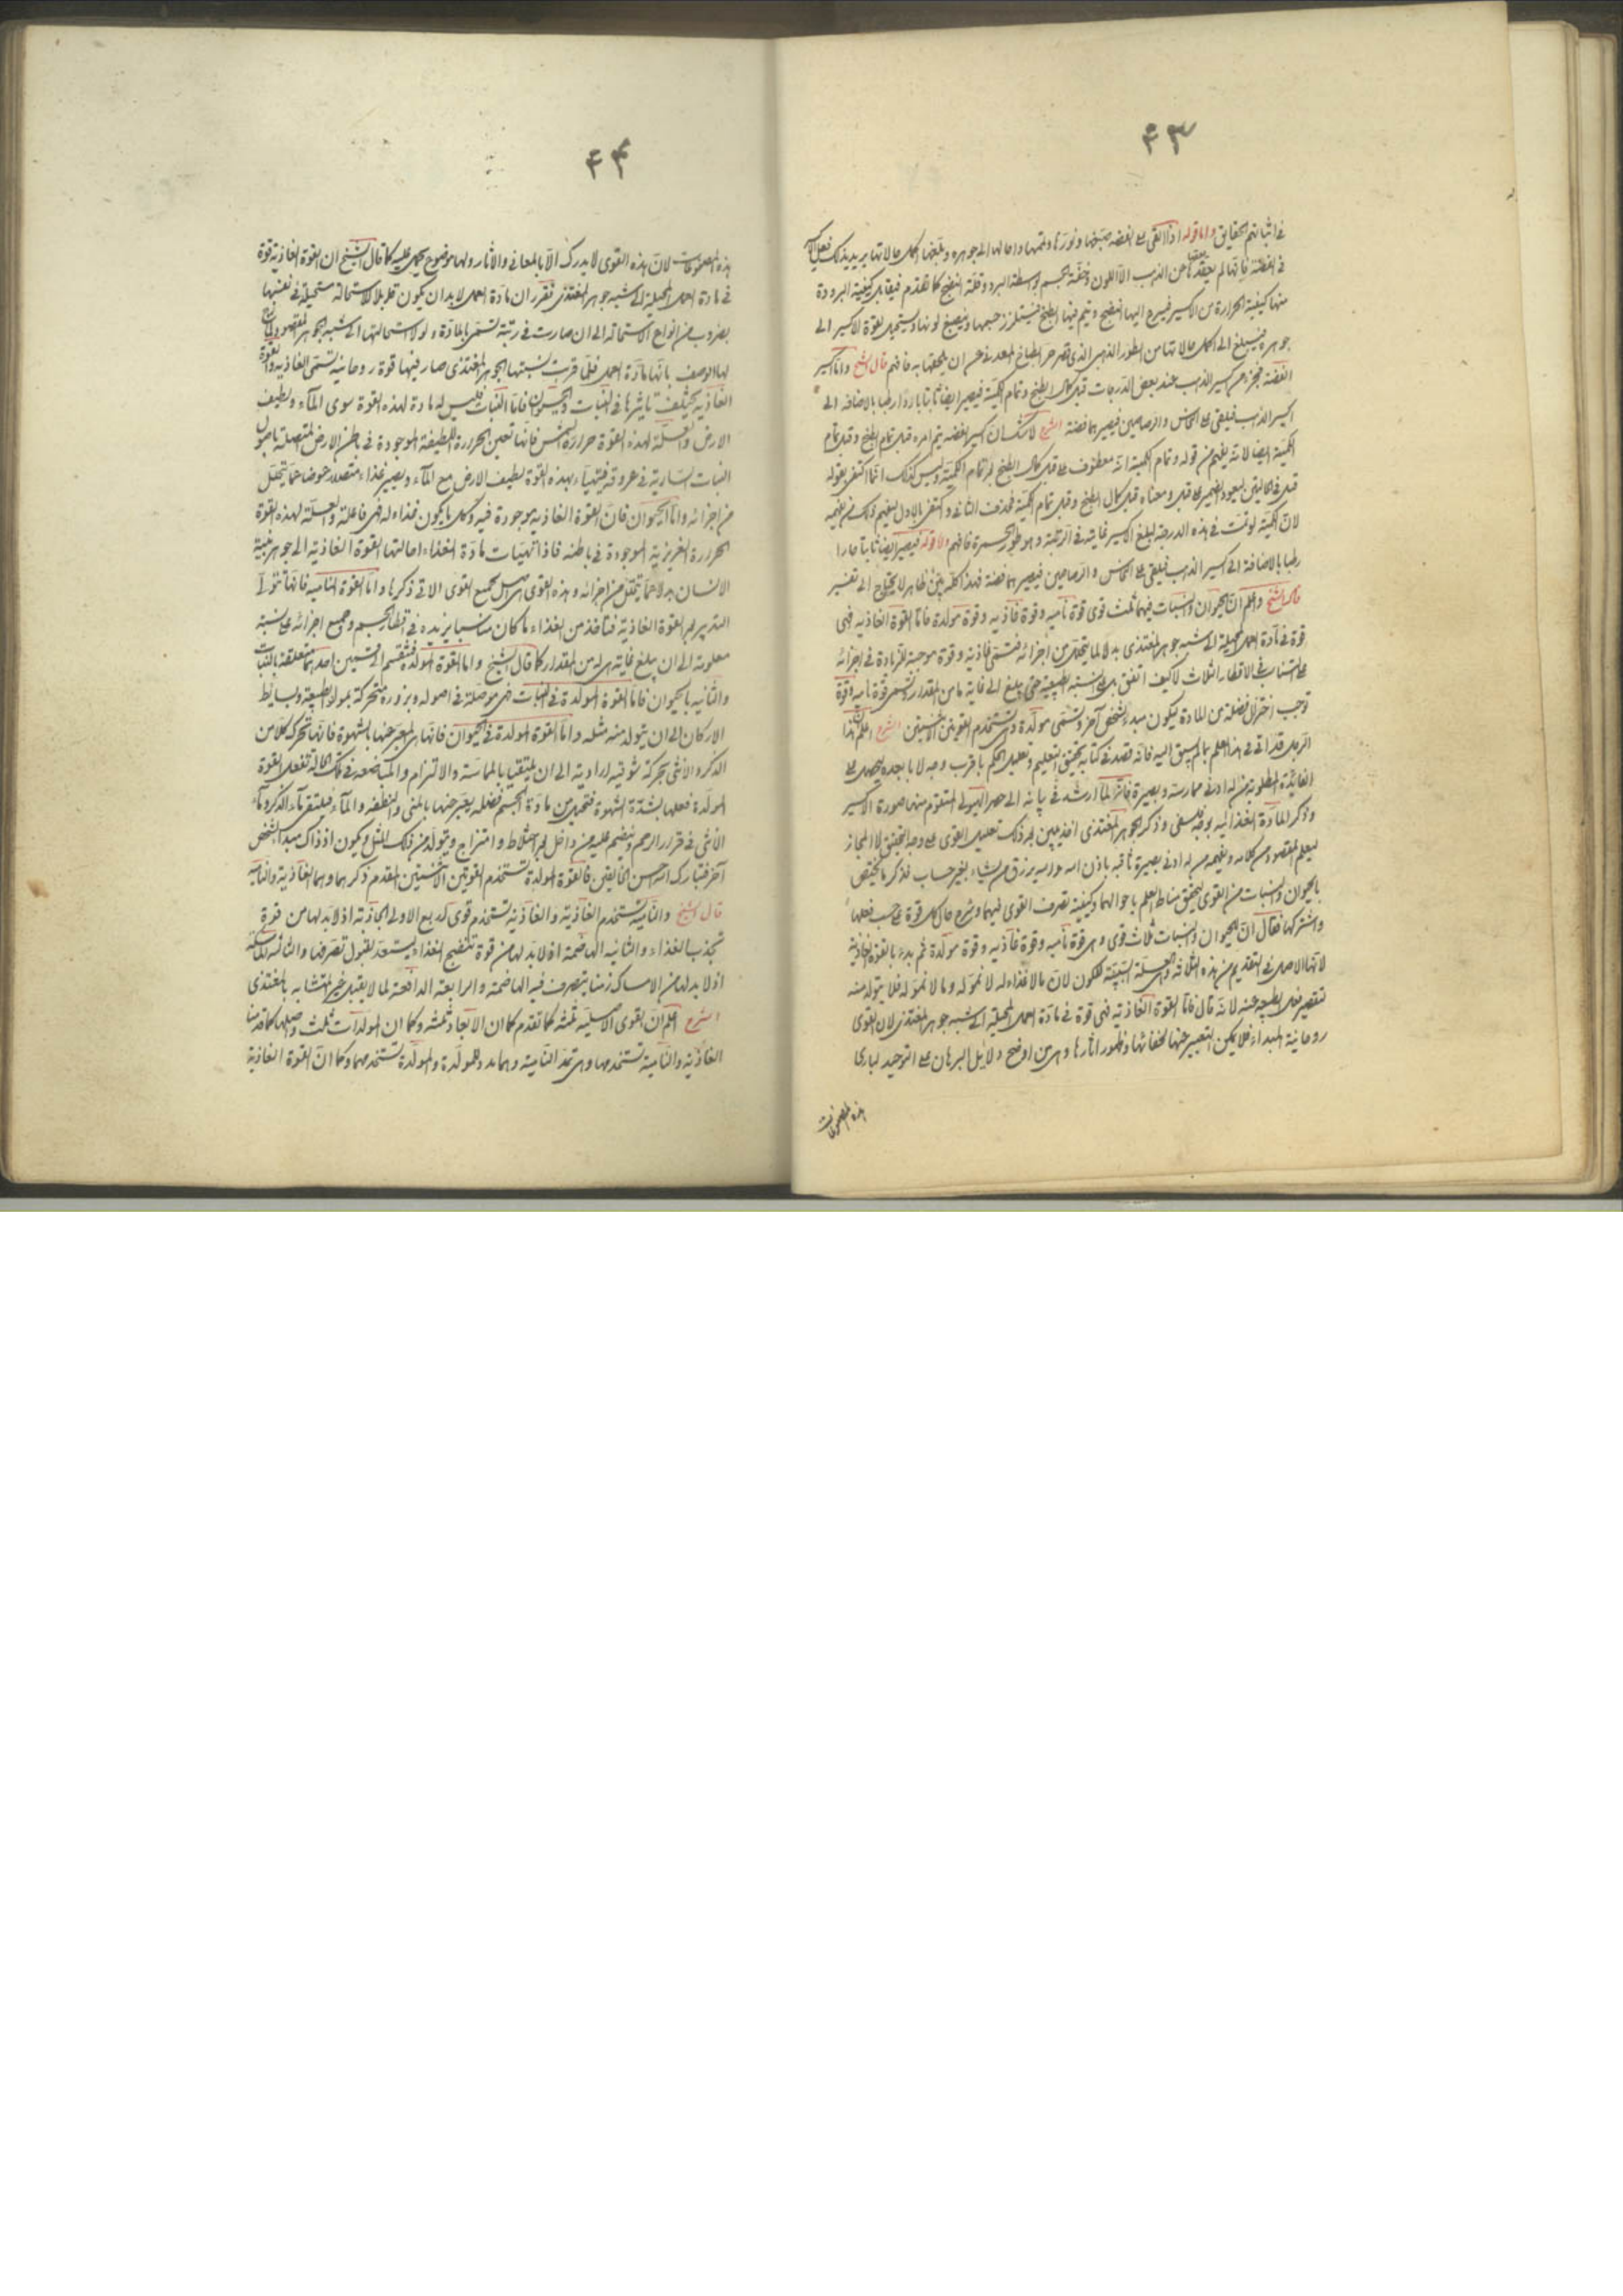 ٤٣
في اثباتهم الحقايق واما قوله اذا القى على الفضه صبغها ونورها وتممها واحالها الى جوهره وبلغها اكمل حالاتها يريد بذلك
في الفضة فانها لم يفقدها من الذهب الا اللون وخفة الجسم بواسطة البرد وقلة النضج كما تقدم فيقابل كيفية البرودة
منها كيفية الحرارة من الاكسير فيسرع اليها النضج ويتم فيها الطبخ فيتلزز جسمها وينصبغ لونها ويستحيل بقوة الاكسير الى
جوهره فيبلغ الى اكمل حالاتها من الطور الذهبى الذى قصر حر الطباخ المعدنى عن ان يلحقها به فافهم قال الشيخ واما اكسير
الفضة فجزء من اكسير الذهب عند بعض الدرجات قبل كمال الطبخ وتمام الكمية فيصير ايضا ثابتا باردا رطبا بالاضافه الى
اكسير الذهب فيلقى على النحاس والرصاصين فيصيرهما فضة الشرح لا شك ان اكسير الفضه يتم امره قبل تمام الطبخ وقبل تمام
الكمية ايضا لانه يفهم من قوله وتمام الكمية انه معطوف على قبل كمال الطبخ لا تمام الكمية وليس كذلك انما اكتفى بقوله
قبل فى ليعود الضمير على قبل ومعناه قبل كمال الطبخ وقبل تمام الكمية فحذف الثانى واكتفى بالاول لتفهيم ذلك
لان الكمية لو تمت فى هذه الدرجة لبلغ الاكسير غايته فى الرتبة وهو طور الحمرة فافهم واما قوله فيصير ايضا ثابتا حارا
رطبا بالاضافة الى اكسير الذهب فيلقى على النحاس والرصاصين فيصيرهما فضة فهذا كله بين ظاهر لا يحتاج الى تفسير
قال الشيخ واعلم ان الحيوان والنبات فيهما ثلث قوى قوة نامية وقوة غاذيه وقوة مولدة فاما القوة الغاذيه فهى
قوة فى مادة العمل المحيلة الى شبه جوهر المغتذى بدلا لما يتحلل من اجزائه فتسمى غاذية وقوة موجبة للزيادة فى اجزائه
على تناسب فى الاقطار الثلاث لا كيف اتفق بل على النسبة الطبيعية حتى يبلغ الى غاية ما من المقدار وتسمى قوة نامية وقوة
توجب اختزال فضلة من المادة ليكون مبدء لشخص آخر وتسمى مولدة وهى تستخدم القويتين الاثنتين الشرح اعلم ان هذا
الرجل قد اتى فى هذا العلم بما لم يسبق اليه فانه قصد فى كتابه تحقيق التعليم وتعليل الحكم باقرب وجه لا بابعده ليحصل على
الفايدة المطلوبة من له ادنى ممارسة وبصيرة فانه لما ارشد فى بيانه الى حصر الهيولى المتقوم منها صورة الاكسير
وذكر المادة الغذائيه بوجه فلسفى وذكر الجوهر المغتذى اخذ يبين بعد ذلك تعليل القوى على وجه الحقيقة لا المجاز
ليعلم المقصود من كلامه ويفهمه من له ادنى بصيرة ثاقبه باذن الله والله يرزق من يشاء بغير حساب فذكر ما يختص
بالحيوان والنبات من القوى ليتحقق مناط العلم باحوالهما وكيفية تصرف القوى فيهما وشرح حال كل قوة على حسب فعلها
واشتراكها فقال ان للحيوان والنبات ثلاث قوى وهى قوة نامية وقوة غاذيه وقوة مولدة ثم بدء بالقوة الغاذية
لانها الاصل فى التقديم من هذه الثلاثة وهى العلة السببية للكون لان ما لا غذاء له لا نمو له وما لا نمو له فلا يتولد منه
لتقصير فعل الطبيعه عنه لانه قال فاما القوة الغاذيه فهى قوة فى مادة العمل المحيلة الى شبه جوهر المغتذى لان القوى
روحانية المبداء فلا يمكن التعبير عنها لخفائها وظهور اثارها وهى من اوضح دلايل البرهان على التوحيد لبارى
هذه المصنوعات
٤٤
هذه المصنوعات لان هذه القوى لا يدرك الا بالمعانى والاثار ولها موضوع تحمل عليه كما قال الشيخ ان القوة الغاذية قوة
فى مادة العمل المحيلة الى شبه جوهر المغتذى فقرر ان مادة العمل لابد ان يكون قابلا للاستحالة مستحيلة فى نفسها
بضروب من انواع الاستحاله الى ان صارت فى رتبة تسمى بالمادة ولولا استحالتها الى شبه الجوهر المقصود لما
لها الوصف بانها مادة العمل فلما قربت نسبتها الجوهر المغتذى صار فيها قوة روحانية تسمى الغاذيه والقوة
الغاذية يختلف تاثيرها فى النبات والحيوان فاما النبات فليس له مادة لهذه القوة سوى الماء ولطيف
الارض والعلة لهذه القوة حرارة الشمس فانها تعين الحرارة اللطيفة الموجودة فى باطن الارض المتصلة باصول
النبات السارية فى عروقه فيتهياء بهذه القوة لطيف الارض مع الماء ويصير غذاء متصلا عوضا عما يتحلل
من اجزائه واما الحيوان فان القوة الغاذيه موجودة فيه وكل ما يكون غذاء له فهى فاعلة والعلة لهذه القوة
الحرارة الغريزية الموجودة فى باطنه فاذا تهيات مادة الغذاء احالتها القوة الغاذية الى جوهر بنية
الانسان بدلا عما يتحلل من اجزائه وهذه القوى هى اصل لجميع القوى الاتى ذكرها واما القوة الناميه فانها تتولى
التدبير بعد القوة الغاذية فتاخذ من الغذاء ما كان مناسبا يزيده فى اقطار الجسم وجميع اجزائه على نسبة
معلومة الى ان يبلغ غايته من المقدار كما قال الشيخ واما القوة المولدة فتنقسم الى قسمين احدهما متعلقة بالنبات
والثانيه بالحيوان فاما القوة المولدة فى النبات فهى موصلة فى اصوله وبزوره متحركة بمواد الطبيعة وبسايط
الاركان الى ان يتولد منه مثله واما القوة المولدة فى الحيوان فانها هى المعبر عنها بالشهوة فانها تحرك كلا من
الذكر والانثى بحركة شوقيه ارادية الى ان يلتقيا بالمماسة والالتزام والمباضعه فى تلك الحالة تفعل القوة
المولدة فعلها بشدة الشهوة فتحيل من مادة الجسم فضله يعبر عنها بالمنى والنطفه والماء فيلتقى ماء الذكر وماء
الانثى فى قرار الرحم وينضم عليه من داخل بعد اختلاط وامتزاج ويتولد من ذلك المثل ويكون اذ ذاك مبدا الشخص
آخر فتبارك الله احسن الخالقين فالقوة المولدة تستخدم القوتين الاثنتين المقدم ذكرهما وهما الغاذية والنامية
قال الشيخ والنامية تستخدم الغاذية والغاذية تستخدم قوى اربع الاولى الجاذبة اذ لا بد لها من قوة
تجذب الغذاء والثانيه الهاضمة اذ لا بد لها من قوة تنضج الغذاء ليستعد لقبول تصرفها والثالثة الماسكة
اذ لا بد لها من الامساك زمنا يتصرف فيه الهاضمة والرابعة الدافعة لما لا يقبل غير المتشابه بالمغتذى
الشرح اعلم ان القوى الاصليه ثلثه كما تقدم كما ان الابعاد ثلثه وكما ان المولدات ثلث واصلها كما قدمنا
الغاذية والنامية تستخدمها وهى تمد النامية وهما مدد للمولدة والمولدة تستخدمهما وكما ان القوة الغاذية